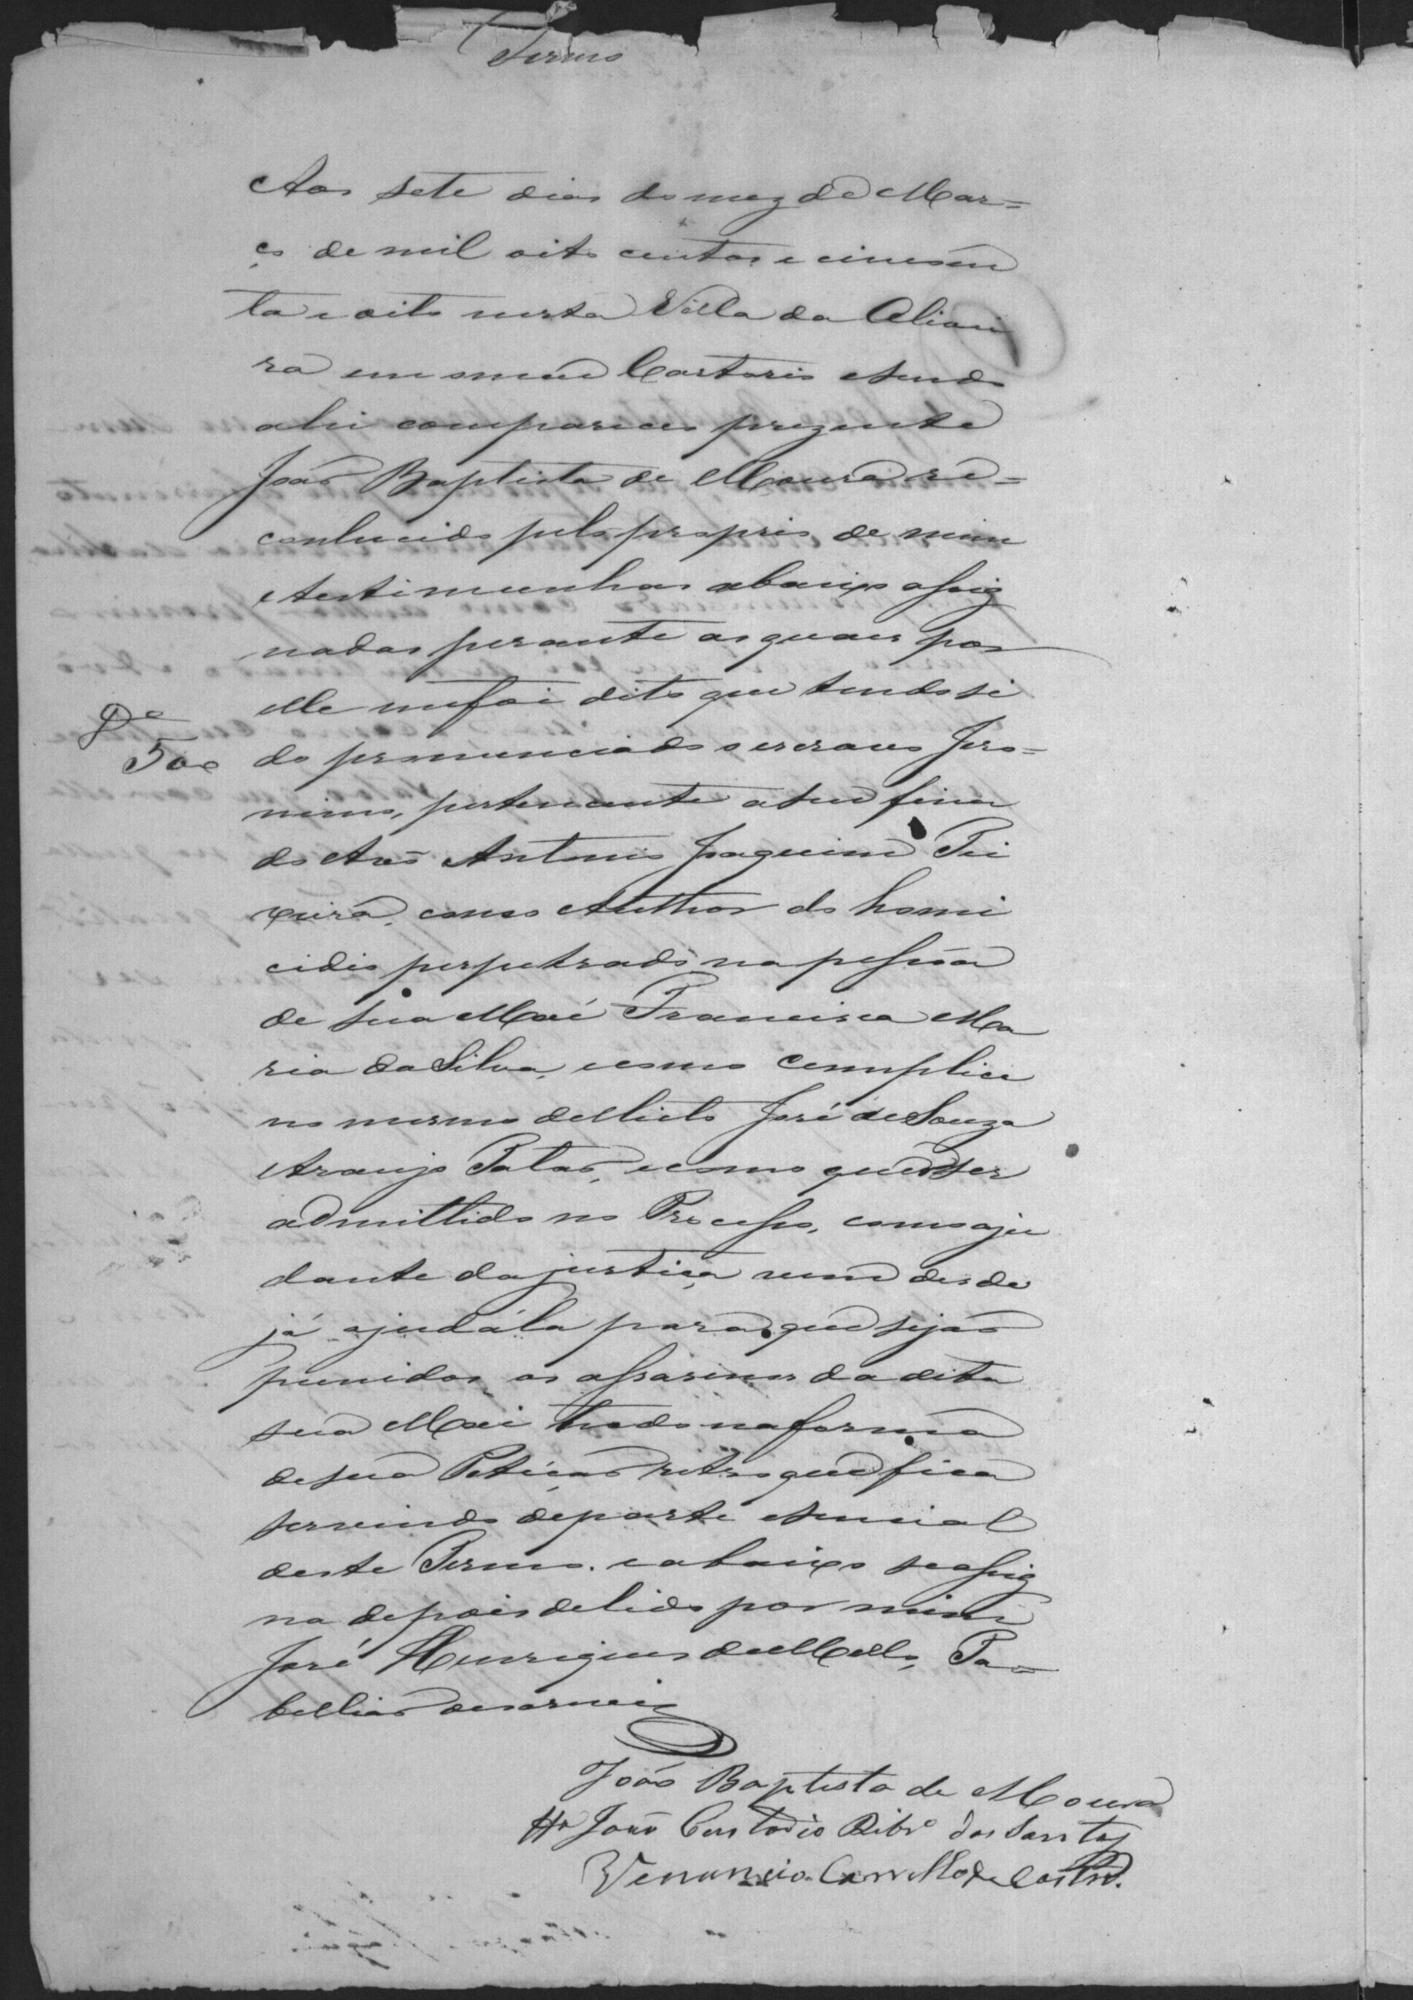 Termo
Aos sete dias do mez de Mar=
ço de mil oito centos e cincoen
ta e oito nesta Villa da
ra em meu Cartorio e sendo
ahi compareceu prezente
João Baptista de Moura re=
conhecido pelo proprio de mim
e testimunhas abaixo assig
nadas perante as quaes por
elle me foi dito que tendo si
do pronunciado o escravo Jero=
nimo, pertencente a seu fina
do Avô Antonio Joaquim Tei
xeira, como Author do homi
cidio perpetrado na pessôa
de sua Mai Francisca Ma
ria da Silva, e como complice
no mesmo dellicto José de Souza
Araujo Patas, e como quer ser
admittido no Processo, como aju
dante da justiça vem desde
já ajudála para que sejão
punidos os assasinos da dita
sua Mai tudo na forma
de sua Petição retro que fica
servindo de parte
deste Termo. e abaixo se assig
na depois de lido por mim
José Henriques de Mello, Ta=
bellião o escrevi
João Baptista de Moura
João Custodio Ribrº dos Santos
Venancio Carrilho de Castro.
500